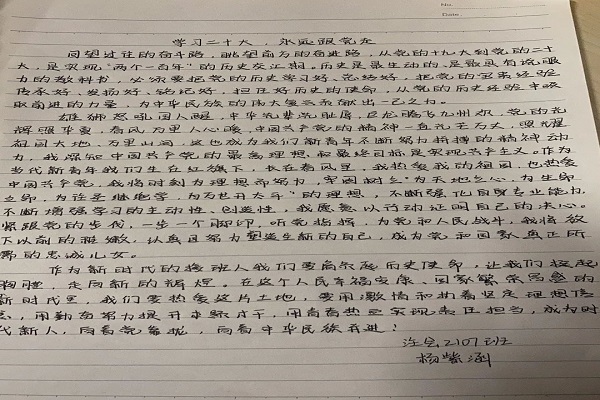 No.
Date.
学习二十大，永远跟党走
回望过往的奋斗路，眺望前方的奋进路，从党的十九大到党的二十
大，是实现"两个一百年"的历史交汇期。历史是最生动的、是最具有说服
力的教科书，必须要把党的历史学习好、总结好，把党的宝贵经验
传承好、发扬好、铭记好，担任好历史的使命，从党的历史经验中吸
取前进的力量，为中华民族的伟大复兴贡献出一己之力。
雄狮怒吼国人醒，中华先辈洗耻辱，巨龙腾飞九州欢，党的光
辉照华夏，春风万里人心暖，中国共产党的精神一直光芒万丈，照耀
祖国大地，万里山河，这也成为我们新青年不断努力拼搏的精神动
力，我深知中国共产党的最高理想和最终目标是实现共产主义。作为
当代新青年我们生在红旗下，长在春风里，我热爱我的祖国，也热爱
中国共产党，我将时刻为理想而努力，牢固树立"为天地立心，为生民
立命，为往圣继绝学，为万世开太平"的理想，不断强化自身专业能力，
不断增强学习的主动性、创造性，我愿意以行动证明自己的决心。
紧跟党的步伐，一步一个脚印，听党指挥，为党和人民战斗，我将放
下以前的稚嫩，认真且努力塑造全新的自己，成为党和国家真正所
需的忠诚儿女。
作为新时代的接班人我们要肩负起历史使命，让我们挺起
胸膛，走向新的辉煌。在这个人民幸福安康、国家繁荣昌盛的
新时代里，我们要热爱这片土地，要用激情和执着坚定理想信
念，用勤奋努力提升本领才干，用青春热血实现责任担当，成为时
代新人，向着党看拢，向着中华民族前进！
注会2107班
杨紫涵